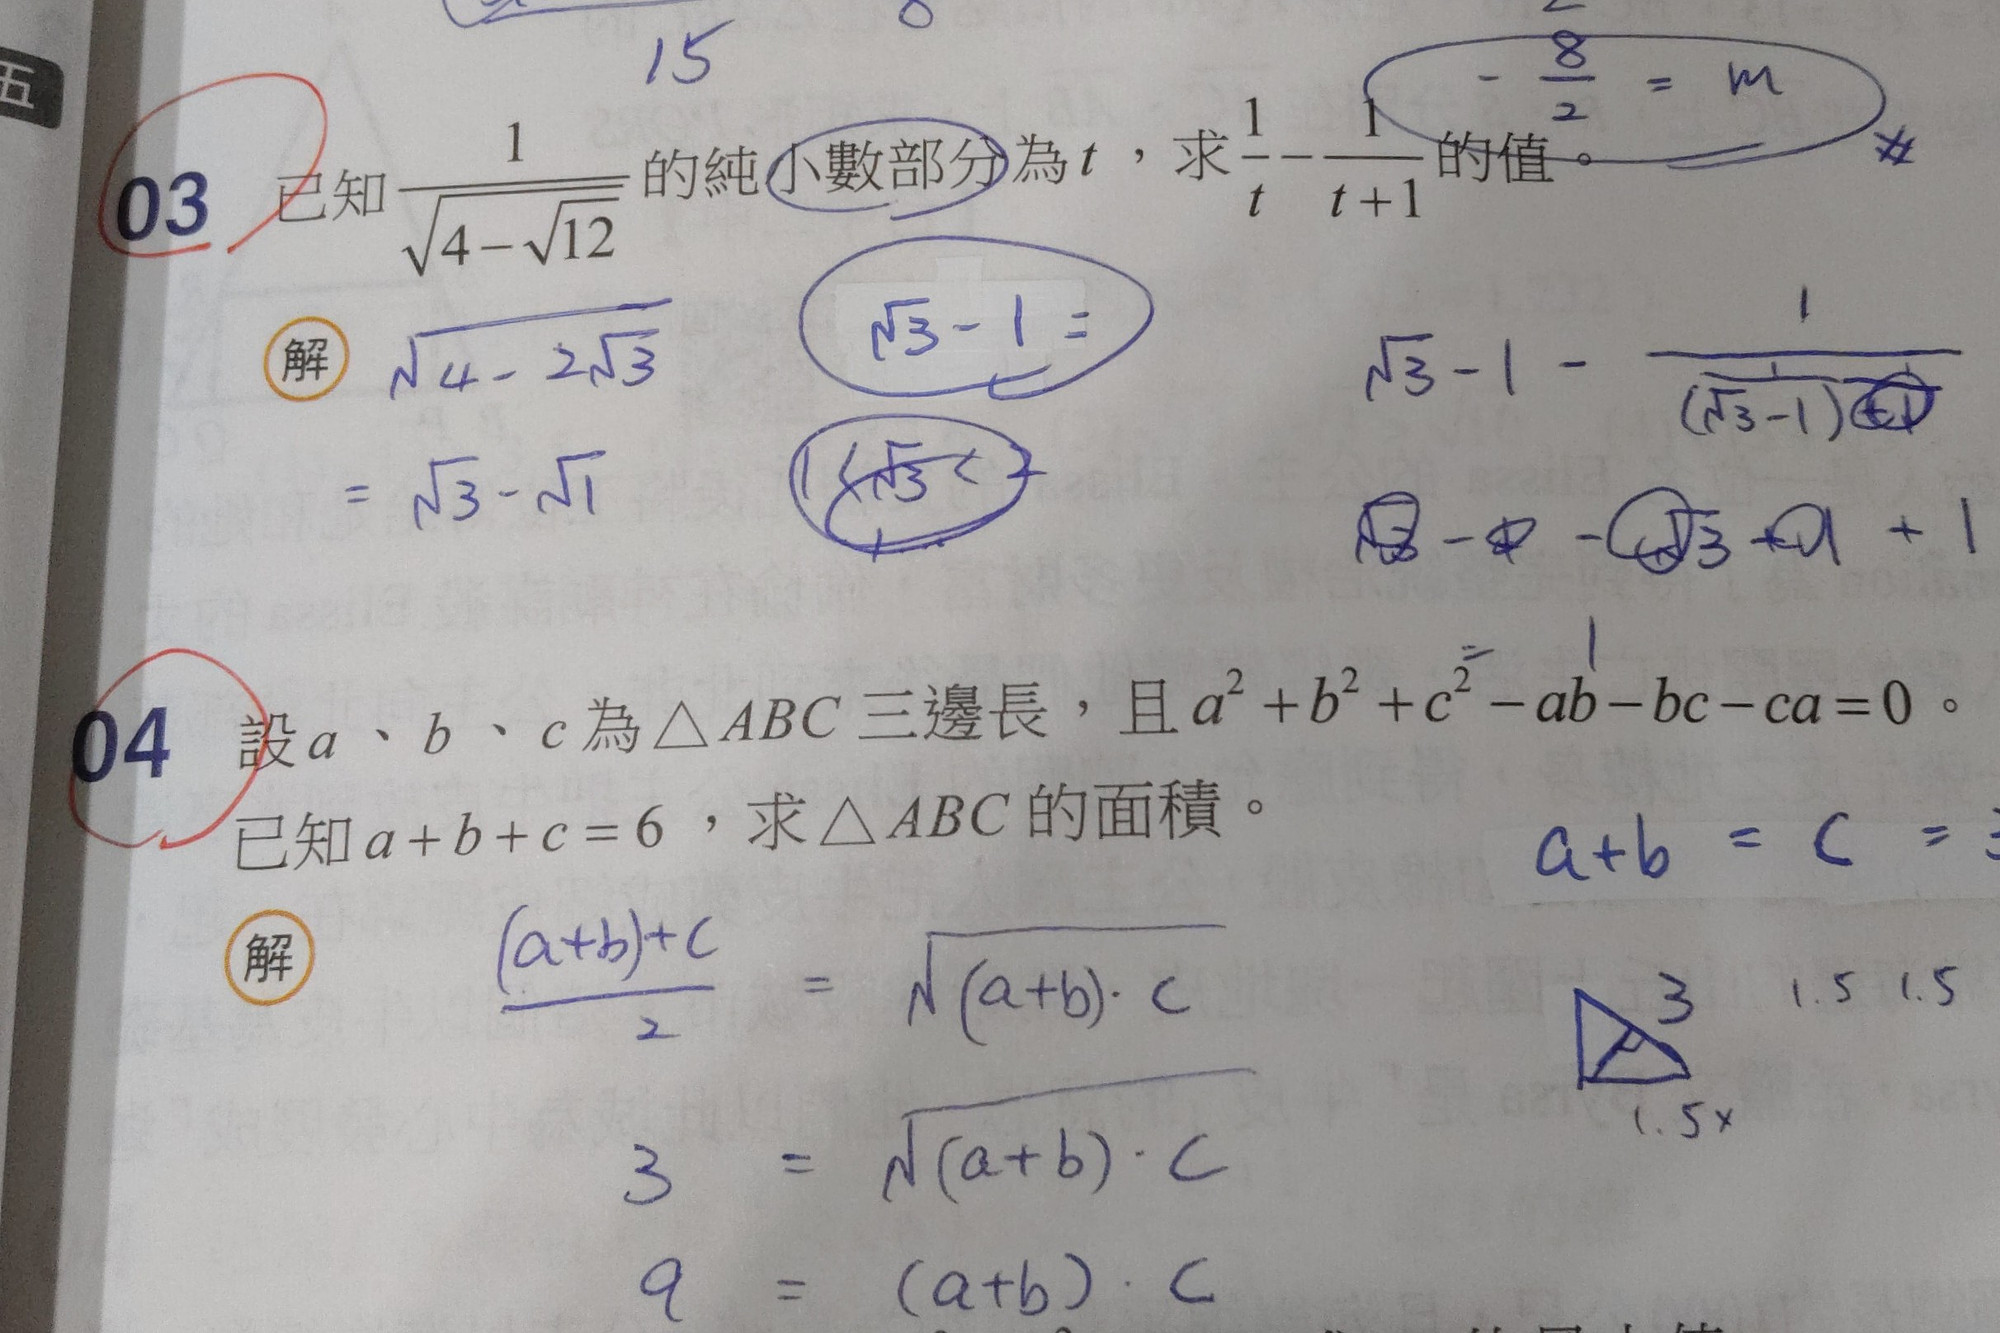 五
15
8
- 8/2 = m
03 已知 1/√(4-√12) 的純小數部分為 t，求 1/t - 1/(t+1) 的值。
解 √(4-2√3)
√3-1=
= √3-√1
1<√3<2
√3-1 - 1/((√3-1)+1)
+1
= 1
04 設 a、b、c 為△ABC 三邊長，且 a²+b²+c²-ab-bc-ca=0。
已知 a+b+c=6，求△ABC 的面積。
a+b = c =
解 ((a+b)+c)/2 = √((a+b)·c)
3 1.5 1.5
1.5x
3 = √((a+b)·c)
9 = (a+b)·c